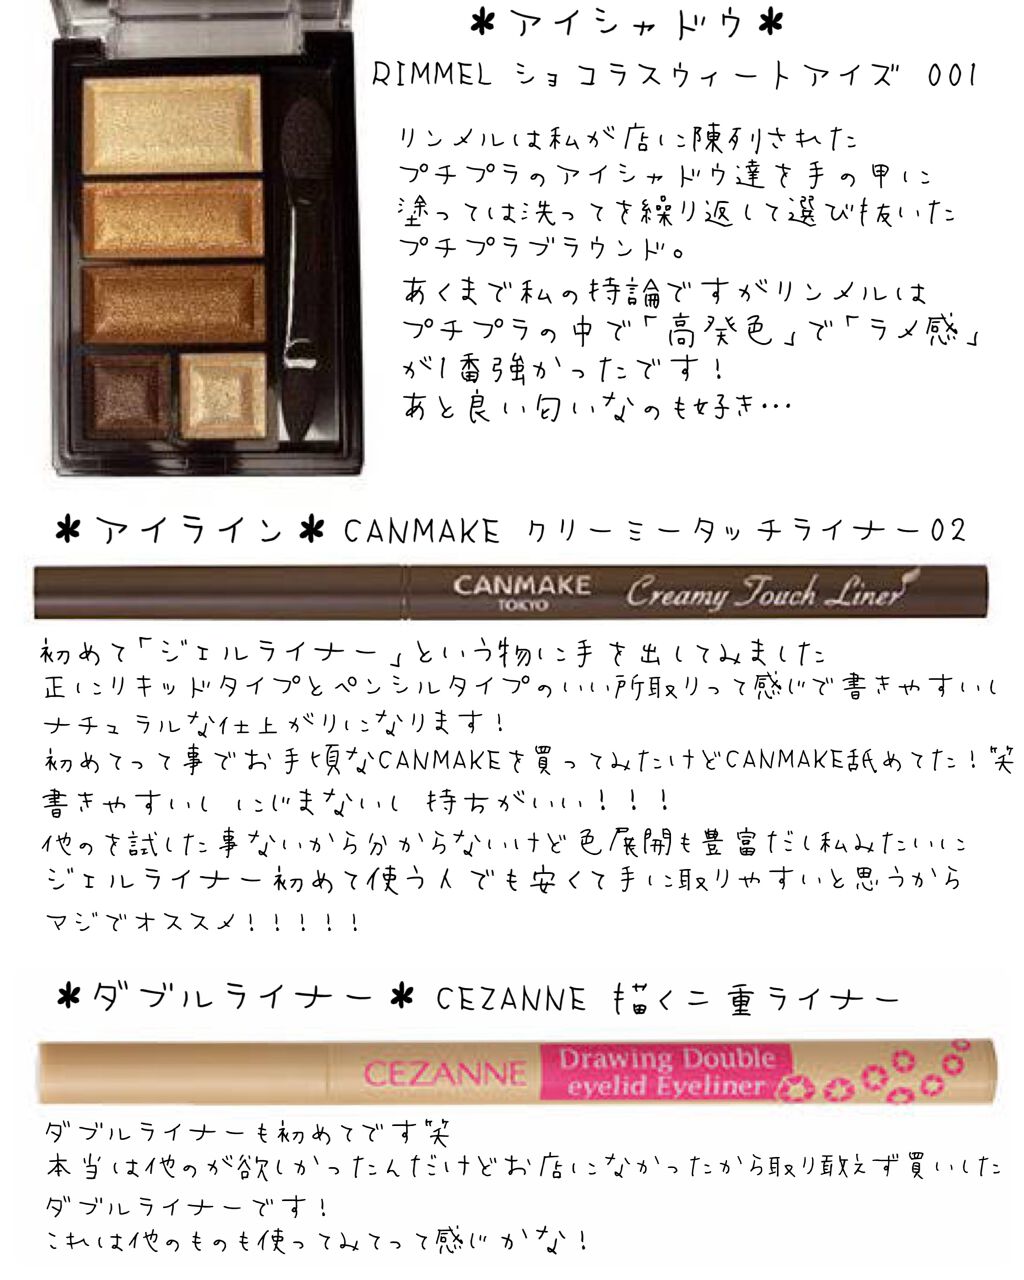 ＊アイシャドウ＊
RIMMEL ショコラスウィートアイズ 001
リンメルは私が店に陳列された
プチプラのアイシャドウ達を手の甲に
塗っては洗ってを繰り返して選び抜いた
プチプラブラウンド。
あくまで私の持論ですがリンメルは
プチプラの中で「高発色」で「ラメ感」
が1番強かったです！
あと良い匂いなのも好き…
＊アイライン＊ CANMAKE クリーミータッチライナー02
CANMAKE
TOKYO
Creamy Touch Liner
初めて「ジェルライナー」という物に手を出してみました
正にリキッドタイプとペンシルタイプのいい所取りって感じで書きやすいし
ナチュラルな仕上がりになります！
初めてって事でお手頃なCANMAKEを買ってみたけどCANMAKE舐めてた！笑
書きやすいし にじまないし 持ちがいい！！！
他のを試した事ないから分からないけど色展開も豊富だし私みたいに
ジェルライナー初めて使う人でも安くて手に取りやすいと思うから
マジでオススメ！！！！！
＊ダブルライナー＊ CEZANNE 描く二重ライナー
CEZANNE
Drawing Double
eyelid Eyeliner
ダブルライナーも初めてです笑
本当は他のが欲しかったんだけどお店になかったから取り敢えず買いした
ダブルライナーです！
これは他のものも使ってみてって感じかな！